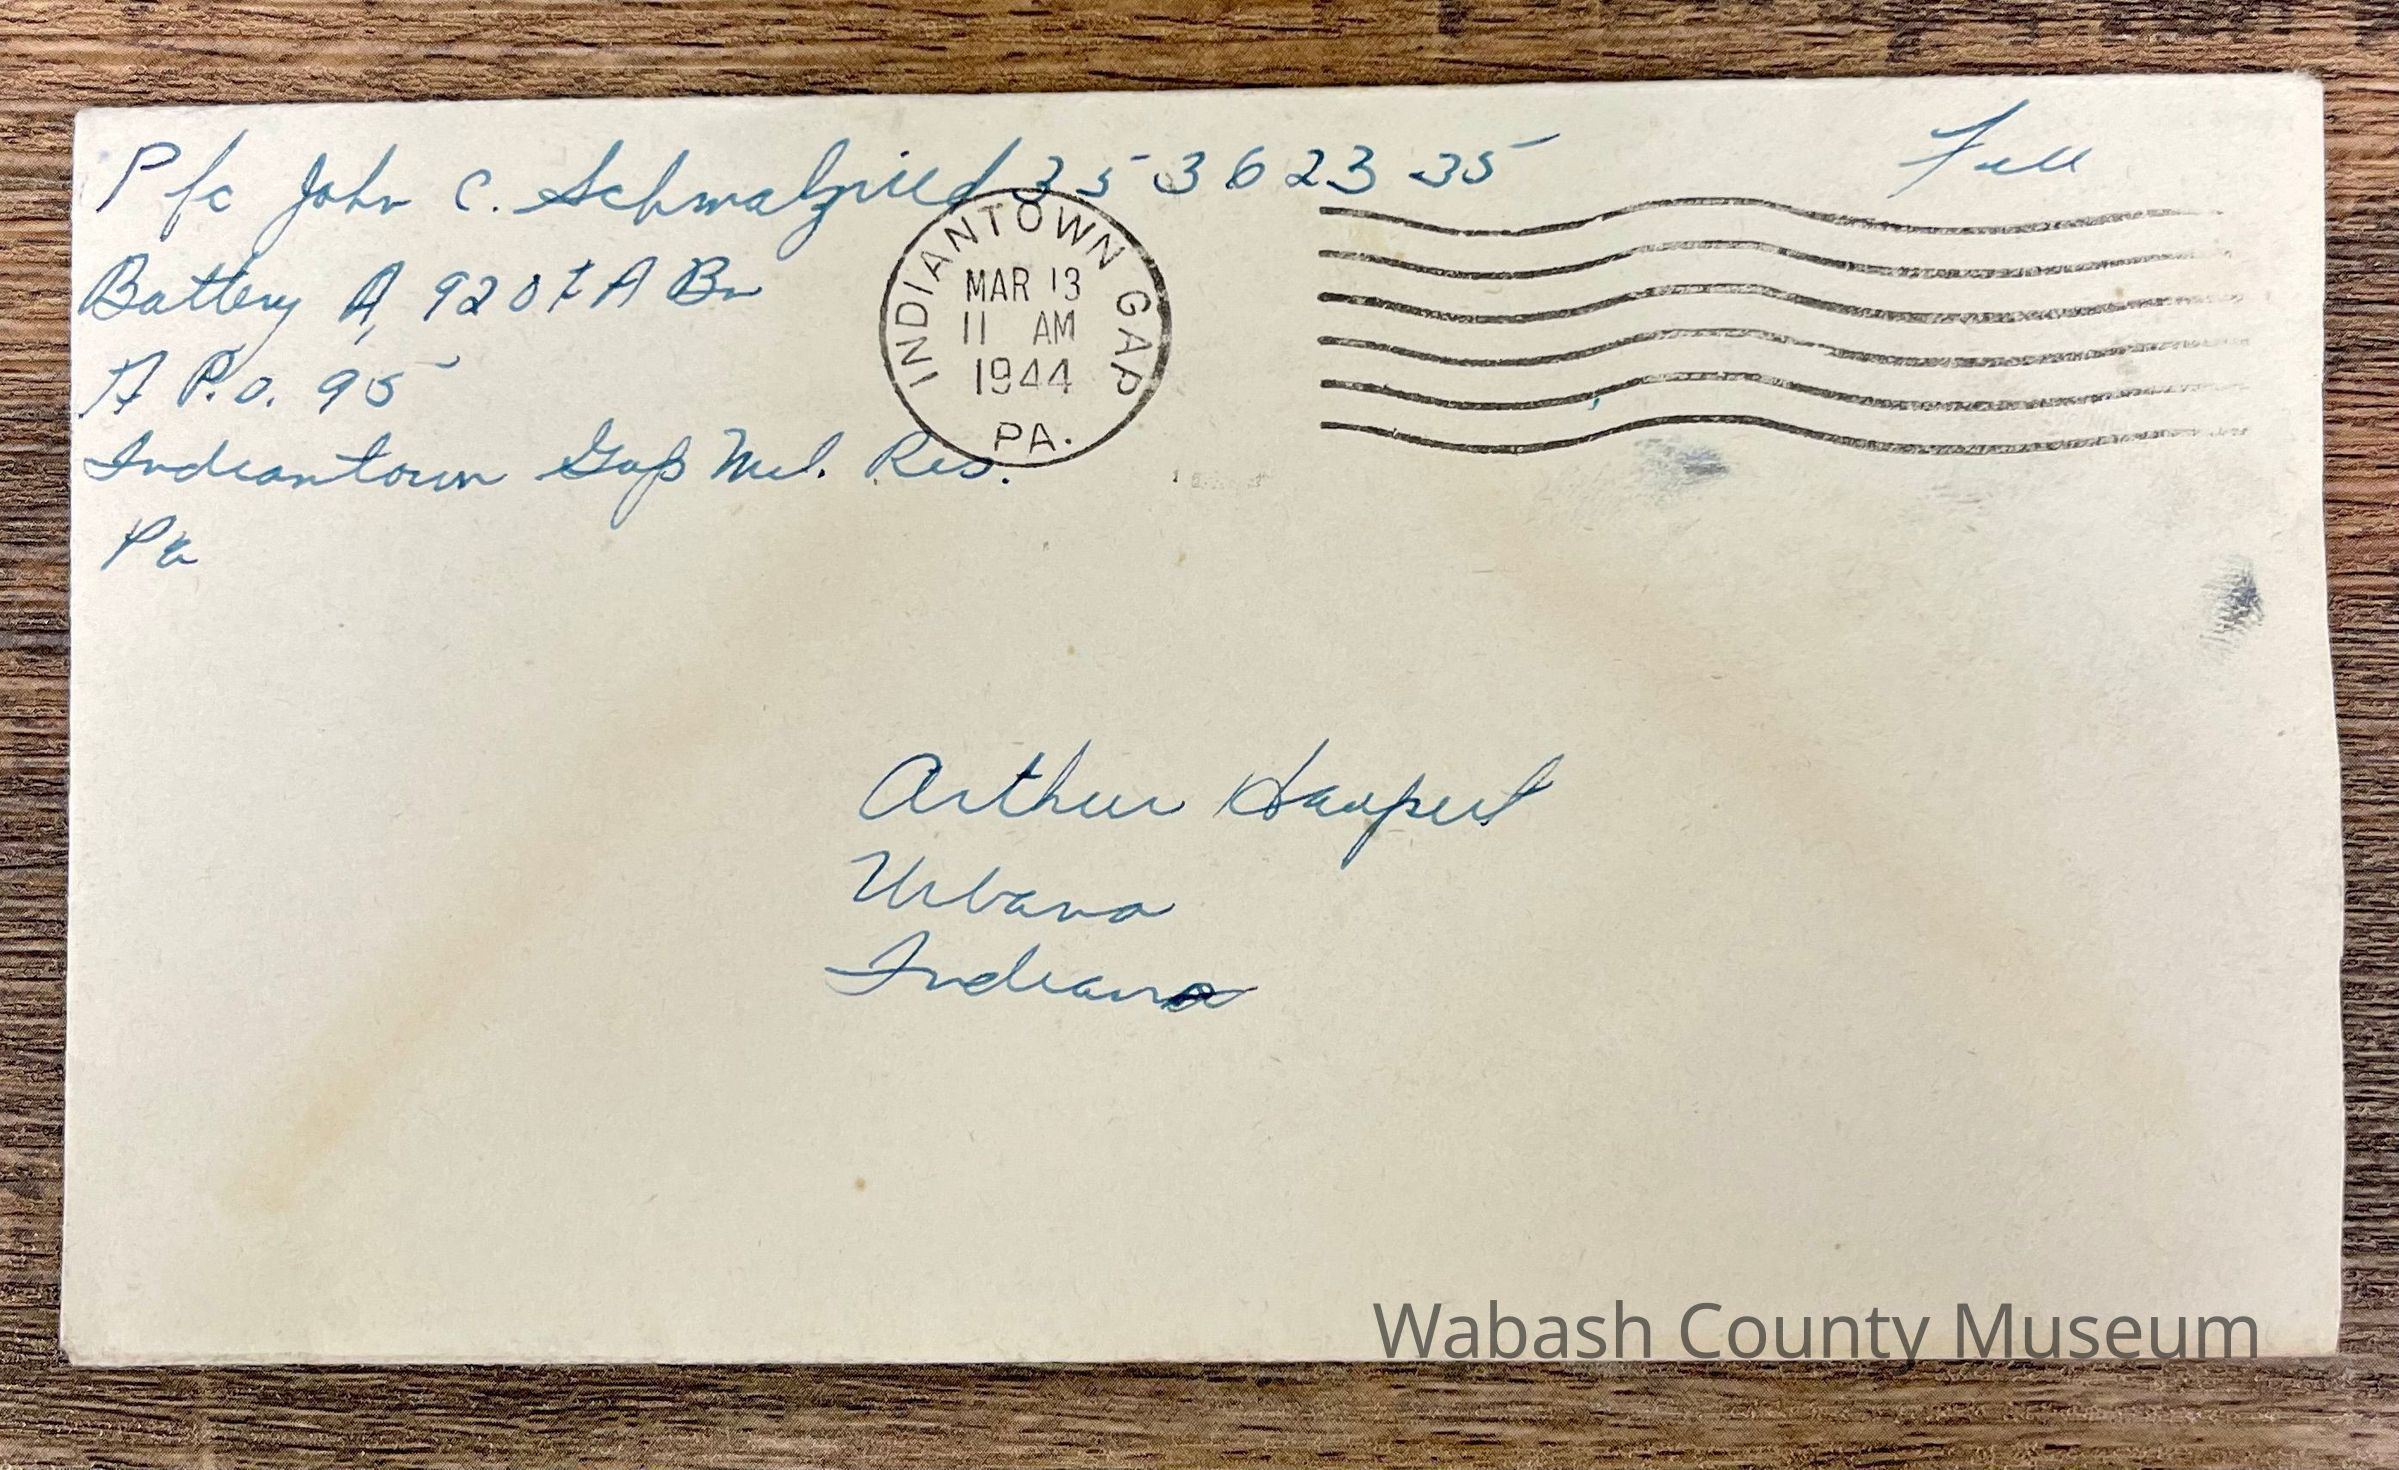 Pfc John C. Schwalzried 35362335
Free
Battery A, 920 FA Bn
A P.O. 95
Indiantown Gap Mil. Res.
Pa
INDIANTOWN GAP
MAR 13
11 AM
1944
PA.
Arthur Haupert
Urbana
Indiana
Wabash County Museum